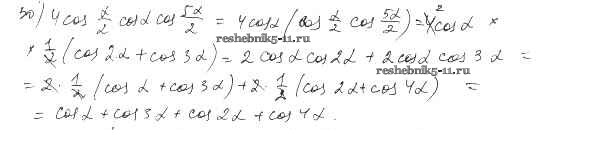 50) 4 cos α/2 cos α cos 5α/2 = 4 cos α (cos α/2 cos 5α/2) = 4² cos α ×
reshebnik5-11.ru
× 1/2 (cos 2α + cos 3α) = 2 cos α cos 2α + 2 cos α cos 3α =
reshebnik5-11.ru
= 2 · 1/2 (cos α + cos 3α) + 2 · 1/2 (cos 2α + cos 4α) =
= cos α + cos 3α + cos 2α + cos 4α.